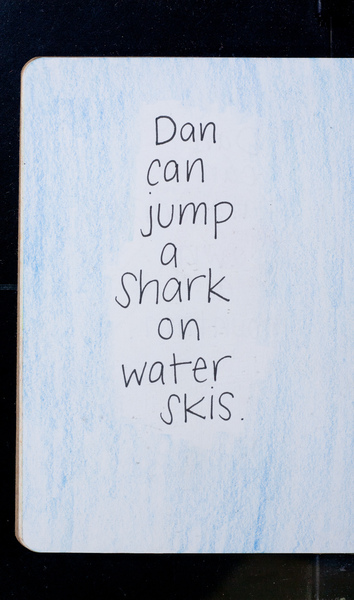 Dan
can
jump
a
shark
on
water
skis.